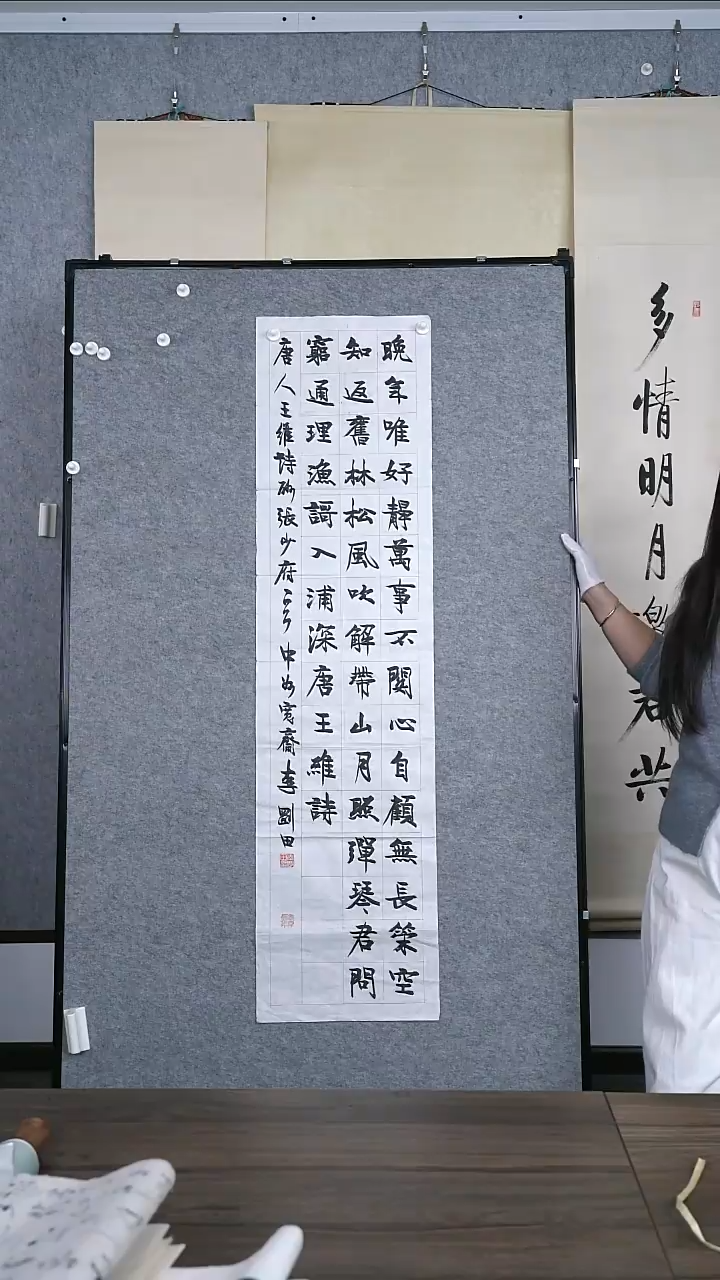 晚年唯好靜萬事不關心自顧無長策空
知返舊林松風吹解帶山月照彈琴君問
窮通理漁謌入浦深唐王維詩
唐人王維詩酬張少府 中州寬齋 劉田
多情明月邀君共